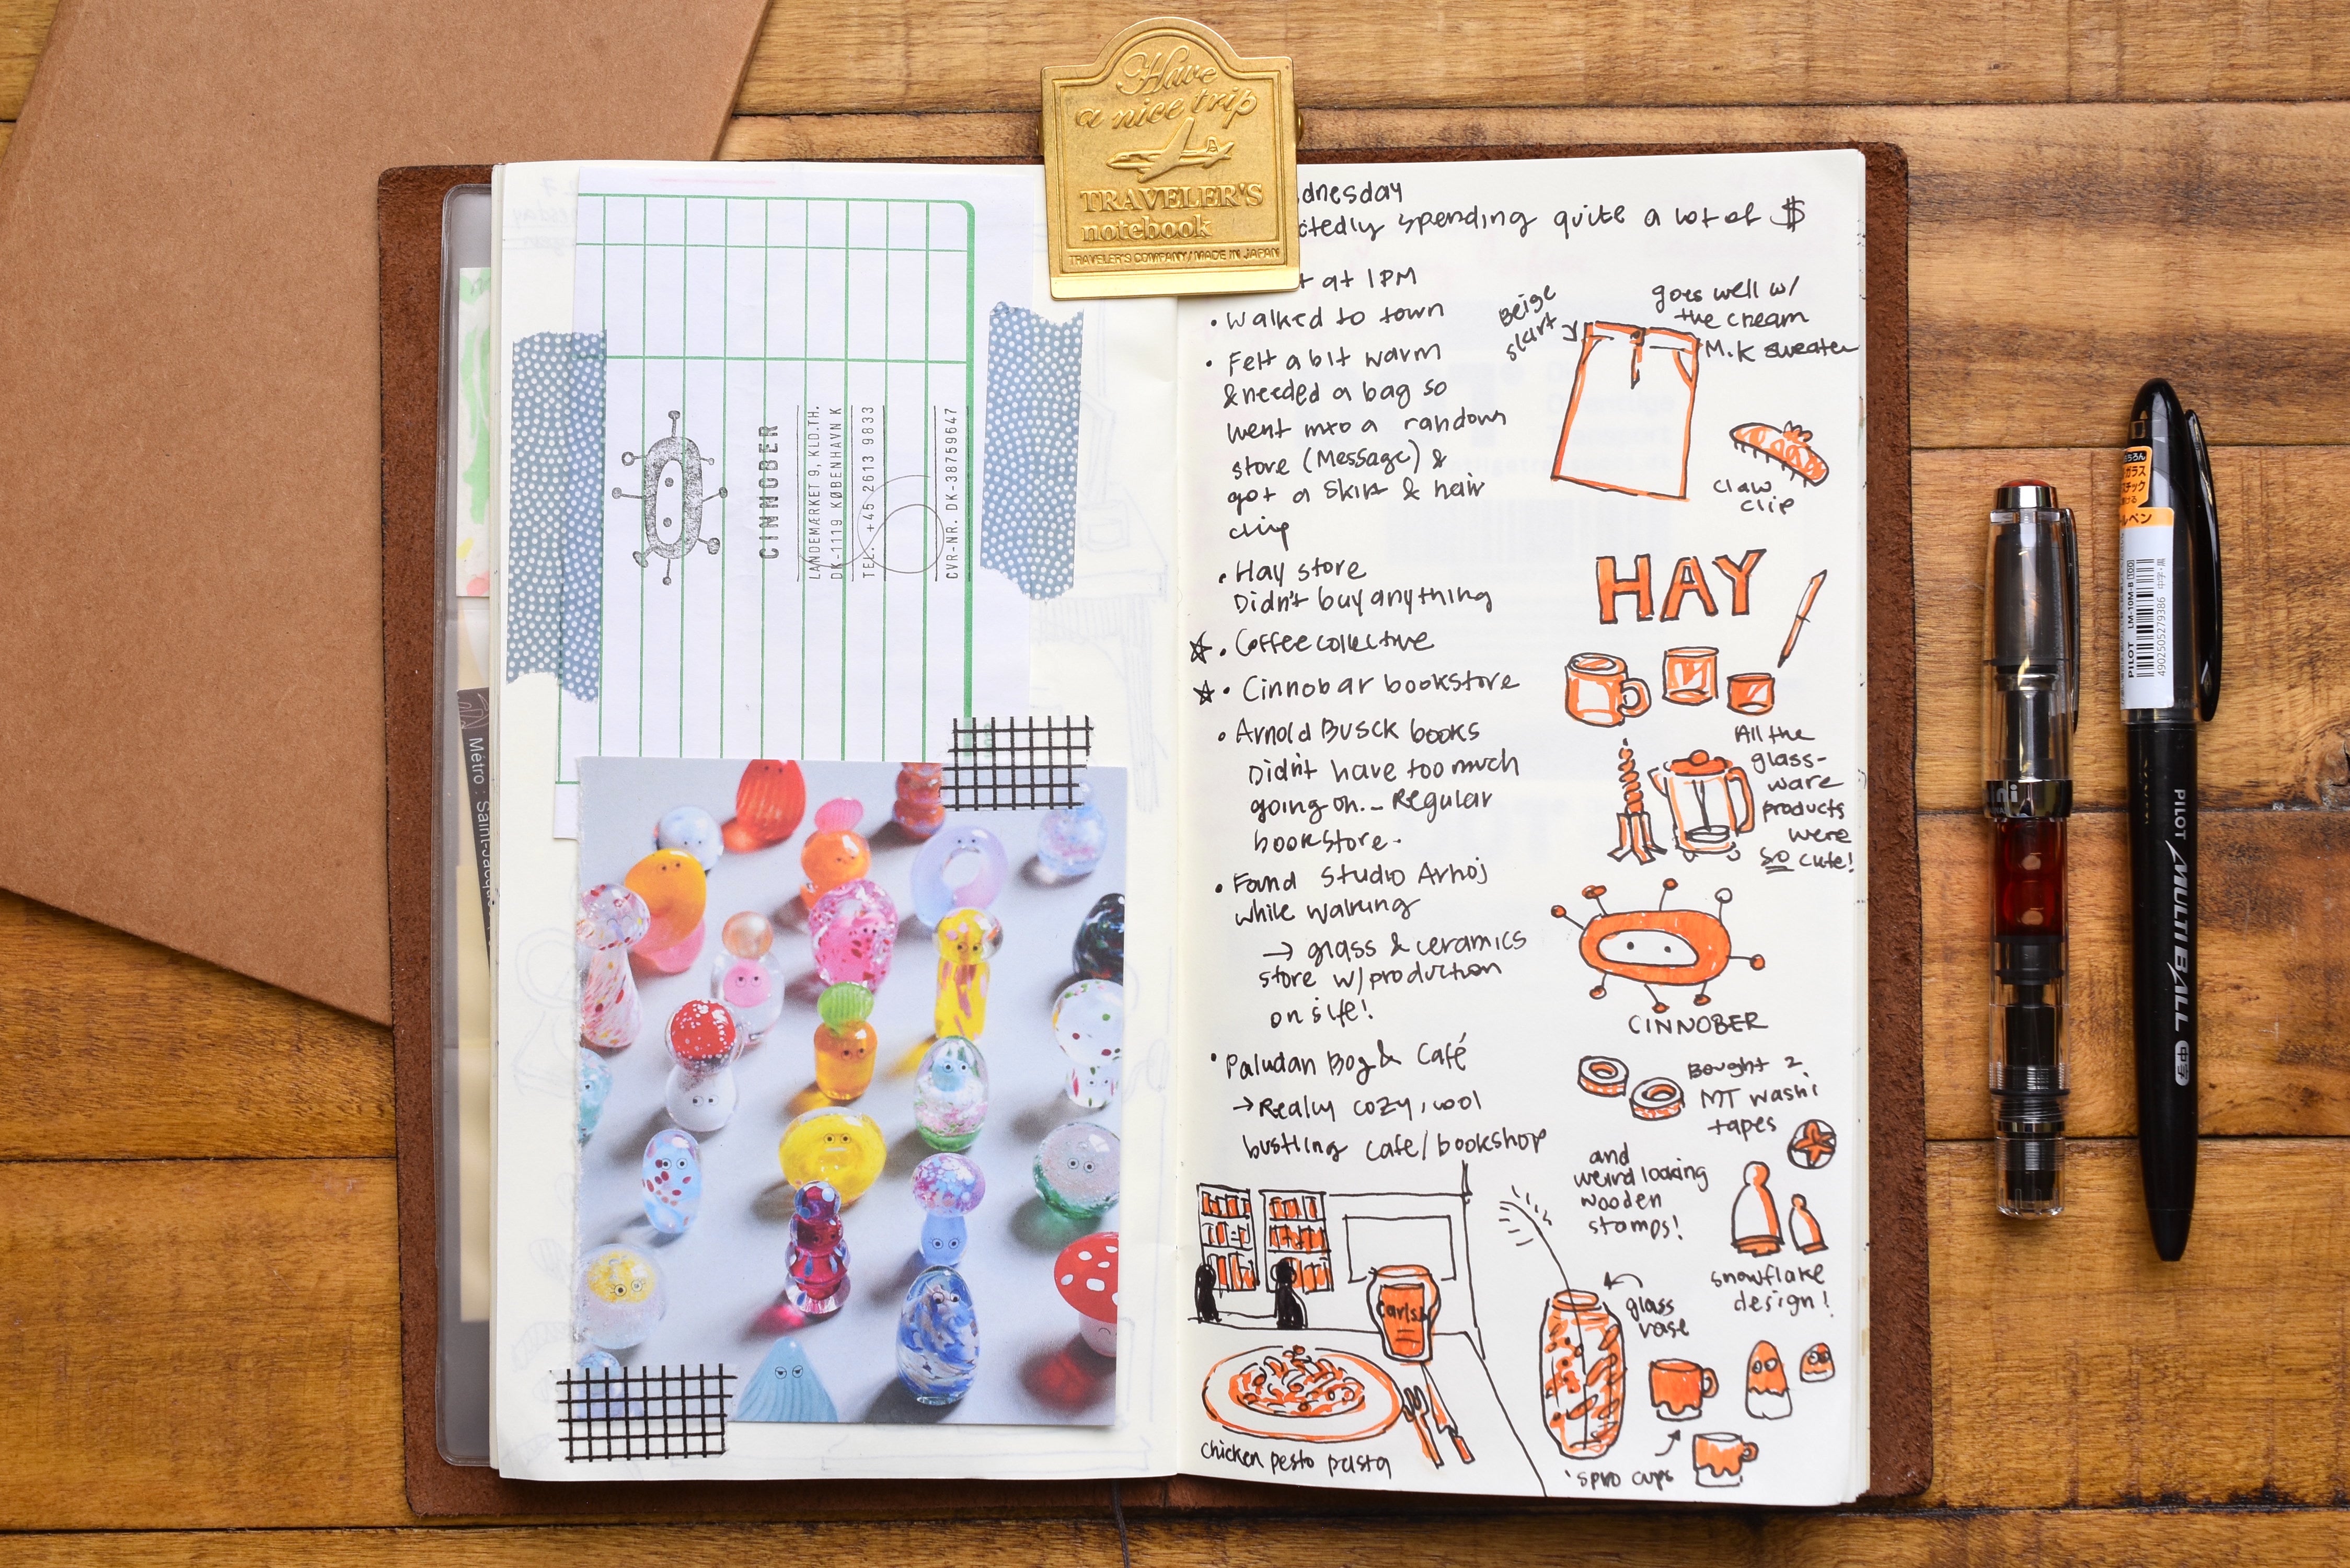 Have
a nice trip
TRAVELER'S
notebook
TRAVELER'S COMPANY/MADE IN JAPAN
CINNOBER
LANDEMÆRKET 9, KLD.TH.
DK-1119 KØBENHAVN K
TEL. +45 2613 9833
CVR-NR. DK-38759647
Métro : Saint-Jacq
dnesday
ctedly spending quite a lot of $
t at 1PM
• Walked to town
• Felt a bit warm
& needed a bag so
went into a random
store (Message) &
got a skirt & hair
clip
• Hay store
Didn't buy anything
• Coffee collective
• Cinnobar bookstore
• Arnold Busck books
Didn't have too much
going on... Regular
bookstore.
• Found Studio Arhoj
while walking
→ glass & ceramics
store w/ production
on site!
• Paludan Bog & Café
→ Really cozy, cool
bustling cafe/bookshop
Carlsb
chicken pesto pasta
Beige
skirt
goes well w/
the cream
M.K sweater
claw
clip
HAY
All the
glass-
ware
products
were
SO cute!
CINNOBER
Bought 2
MT washi
tapes
and
weird looking
wooden
stamps!
snowflake
design!
glass
vase
'spro cups
PILOT LM-10M-B
4902505279386
PILOT MULTI BALL 中字